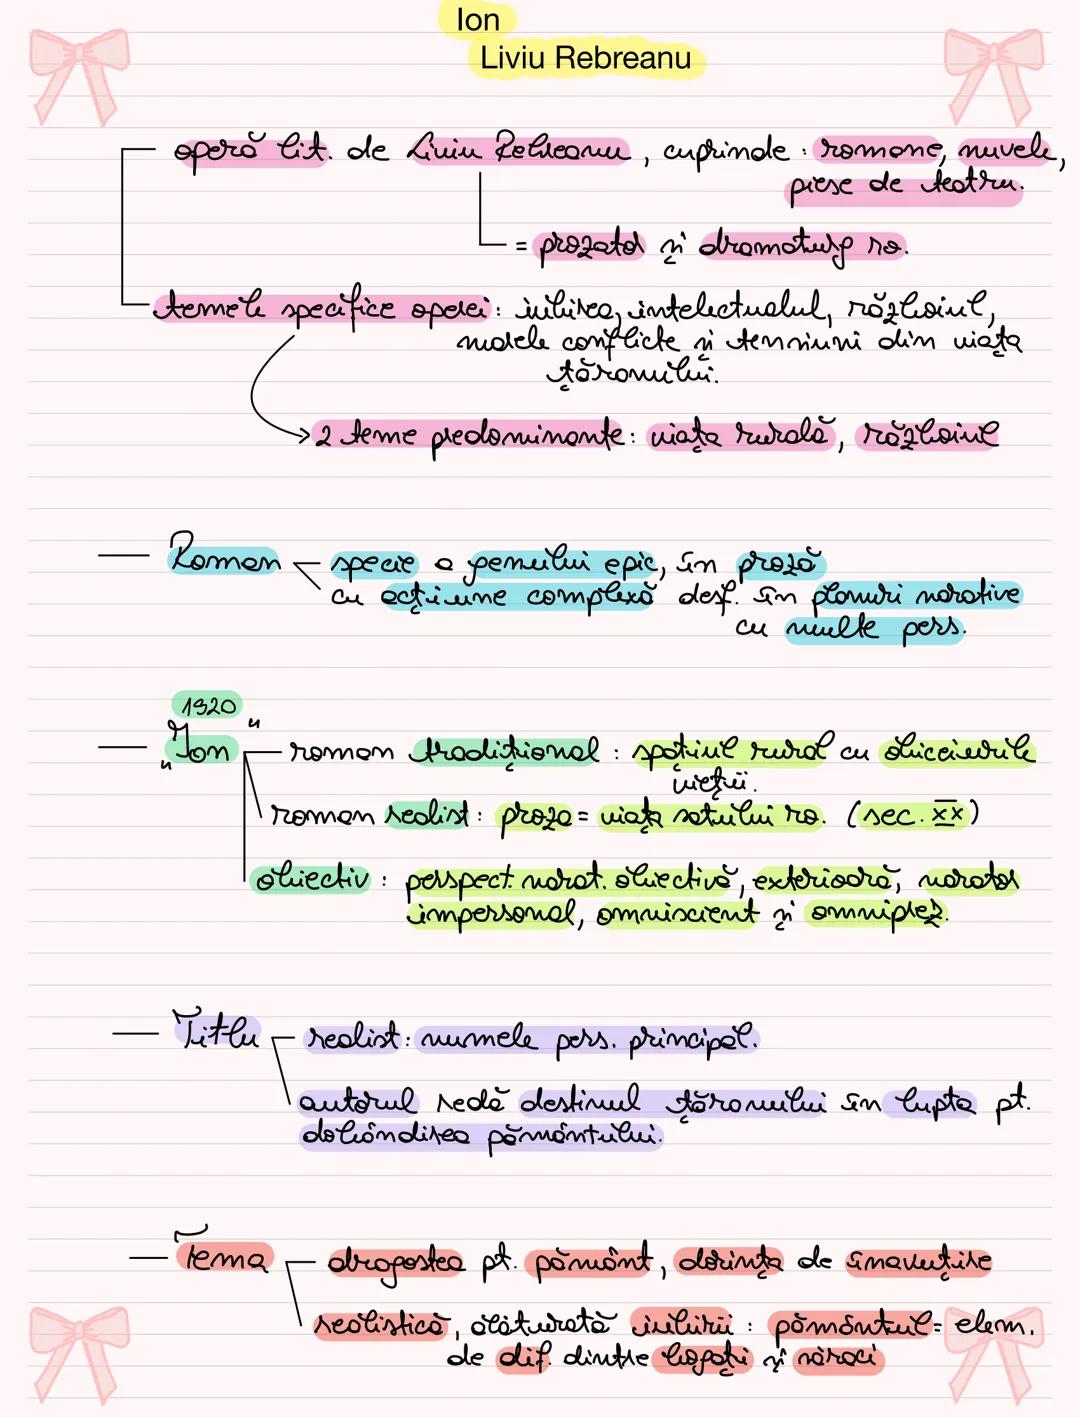 Ion
Liviu Rebreanu
operă lit. de Liviu Rebreanu, cuprinde: romane, nuvele,
piese de teatru.
= prozator și dramaturg ro.
temele specifice operei: iubirea, intelectualul, războiul,
marele conflicte și tensiuni din viața
țăranului.
2 teme predominante: viața rurală, războiul
Roman specie a genului epic, în proză
cu acțiune complexă desf. în planuri narative
cu multe pers.
1920
"Ion" roman tradițional: spațiul rural cu obiceiurile
vieții.
roman realist: proza = viața satului ro. (sec. XX)
obiectiv: perspect. narat. obiectivă, exterioară, narator
impersonal, omniscient și omniprez.
Titlu realist: numele pers. principal.
autorul redă destinul țăranului în lupta pt.
dobândirea pământului.
Tema dragostea pt. pământ, dorința de înavuțire
realistică, alăturată iubirii: pământul = elem.
de dif. dintre bogați și săraci